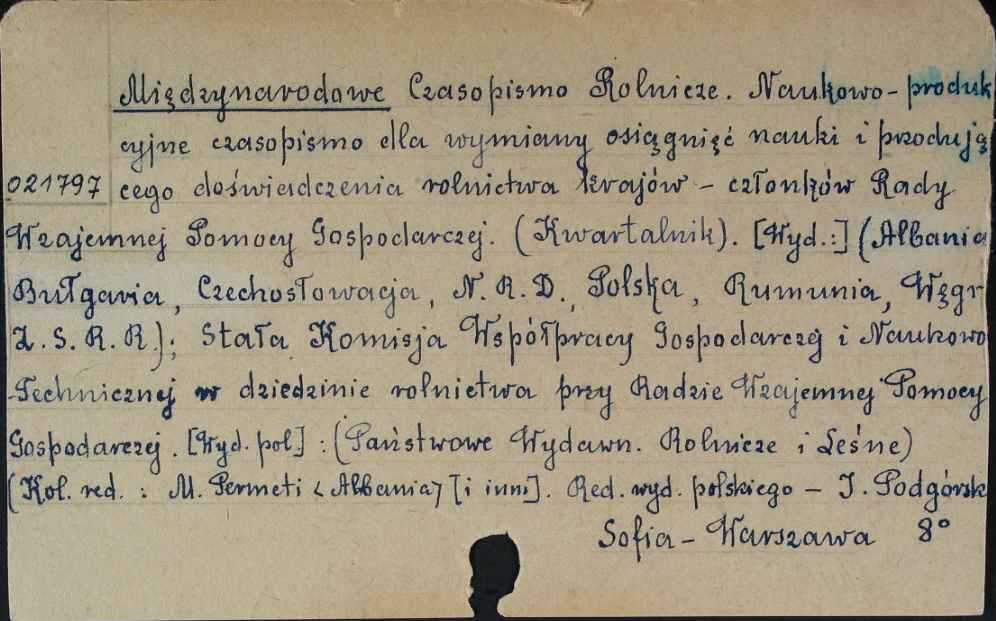 Międzynarodowe Czasopismo Rolnicze. Naukowo-produk
cyjne czasopismo dla wymiany osiągnięć nauki i przodują
021797 cego doświadczenia rolnictwa krajów - członków Rady
Wzajemnej Pomocy Gospodarczej. (Kwartalnik). [Wyd.:] (Albania
Bułgaria, Czechosłowacja, N. R. D., Polska, Rumunia, Węgr
Z. S. R. R.); Stała Komisja Współpracy Gospodarczej i Naukowo
-Technicznej w dziedzinie rolnictwa przy Radzie Wzajemnej Pomocy
Gospodarczej. [Wyd. pol] : (Państwowe Wydawn. Rolnicze i Leśne)
(Kol. red. : M. Permeti < Albania> [i inni]. Red. wyd. polskiego - J. Podgórsk
Sofia - Warszawa 8°